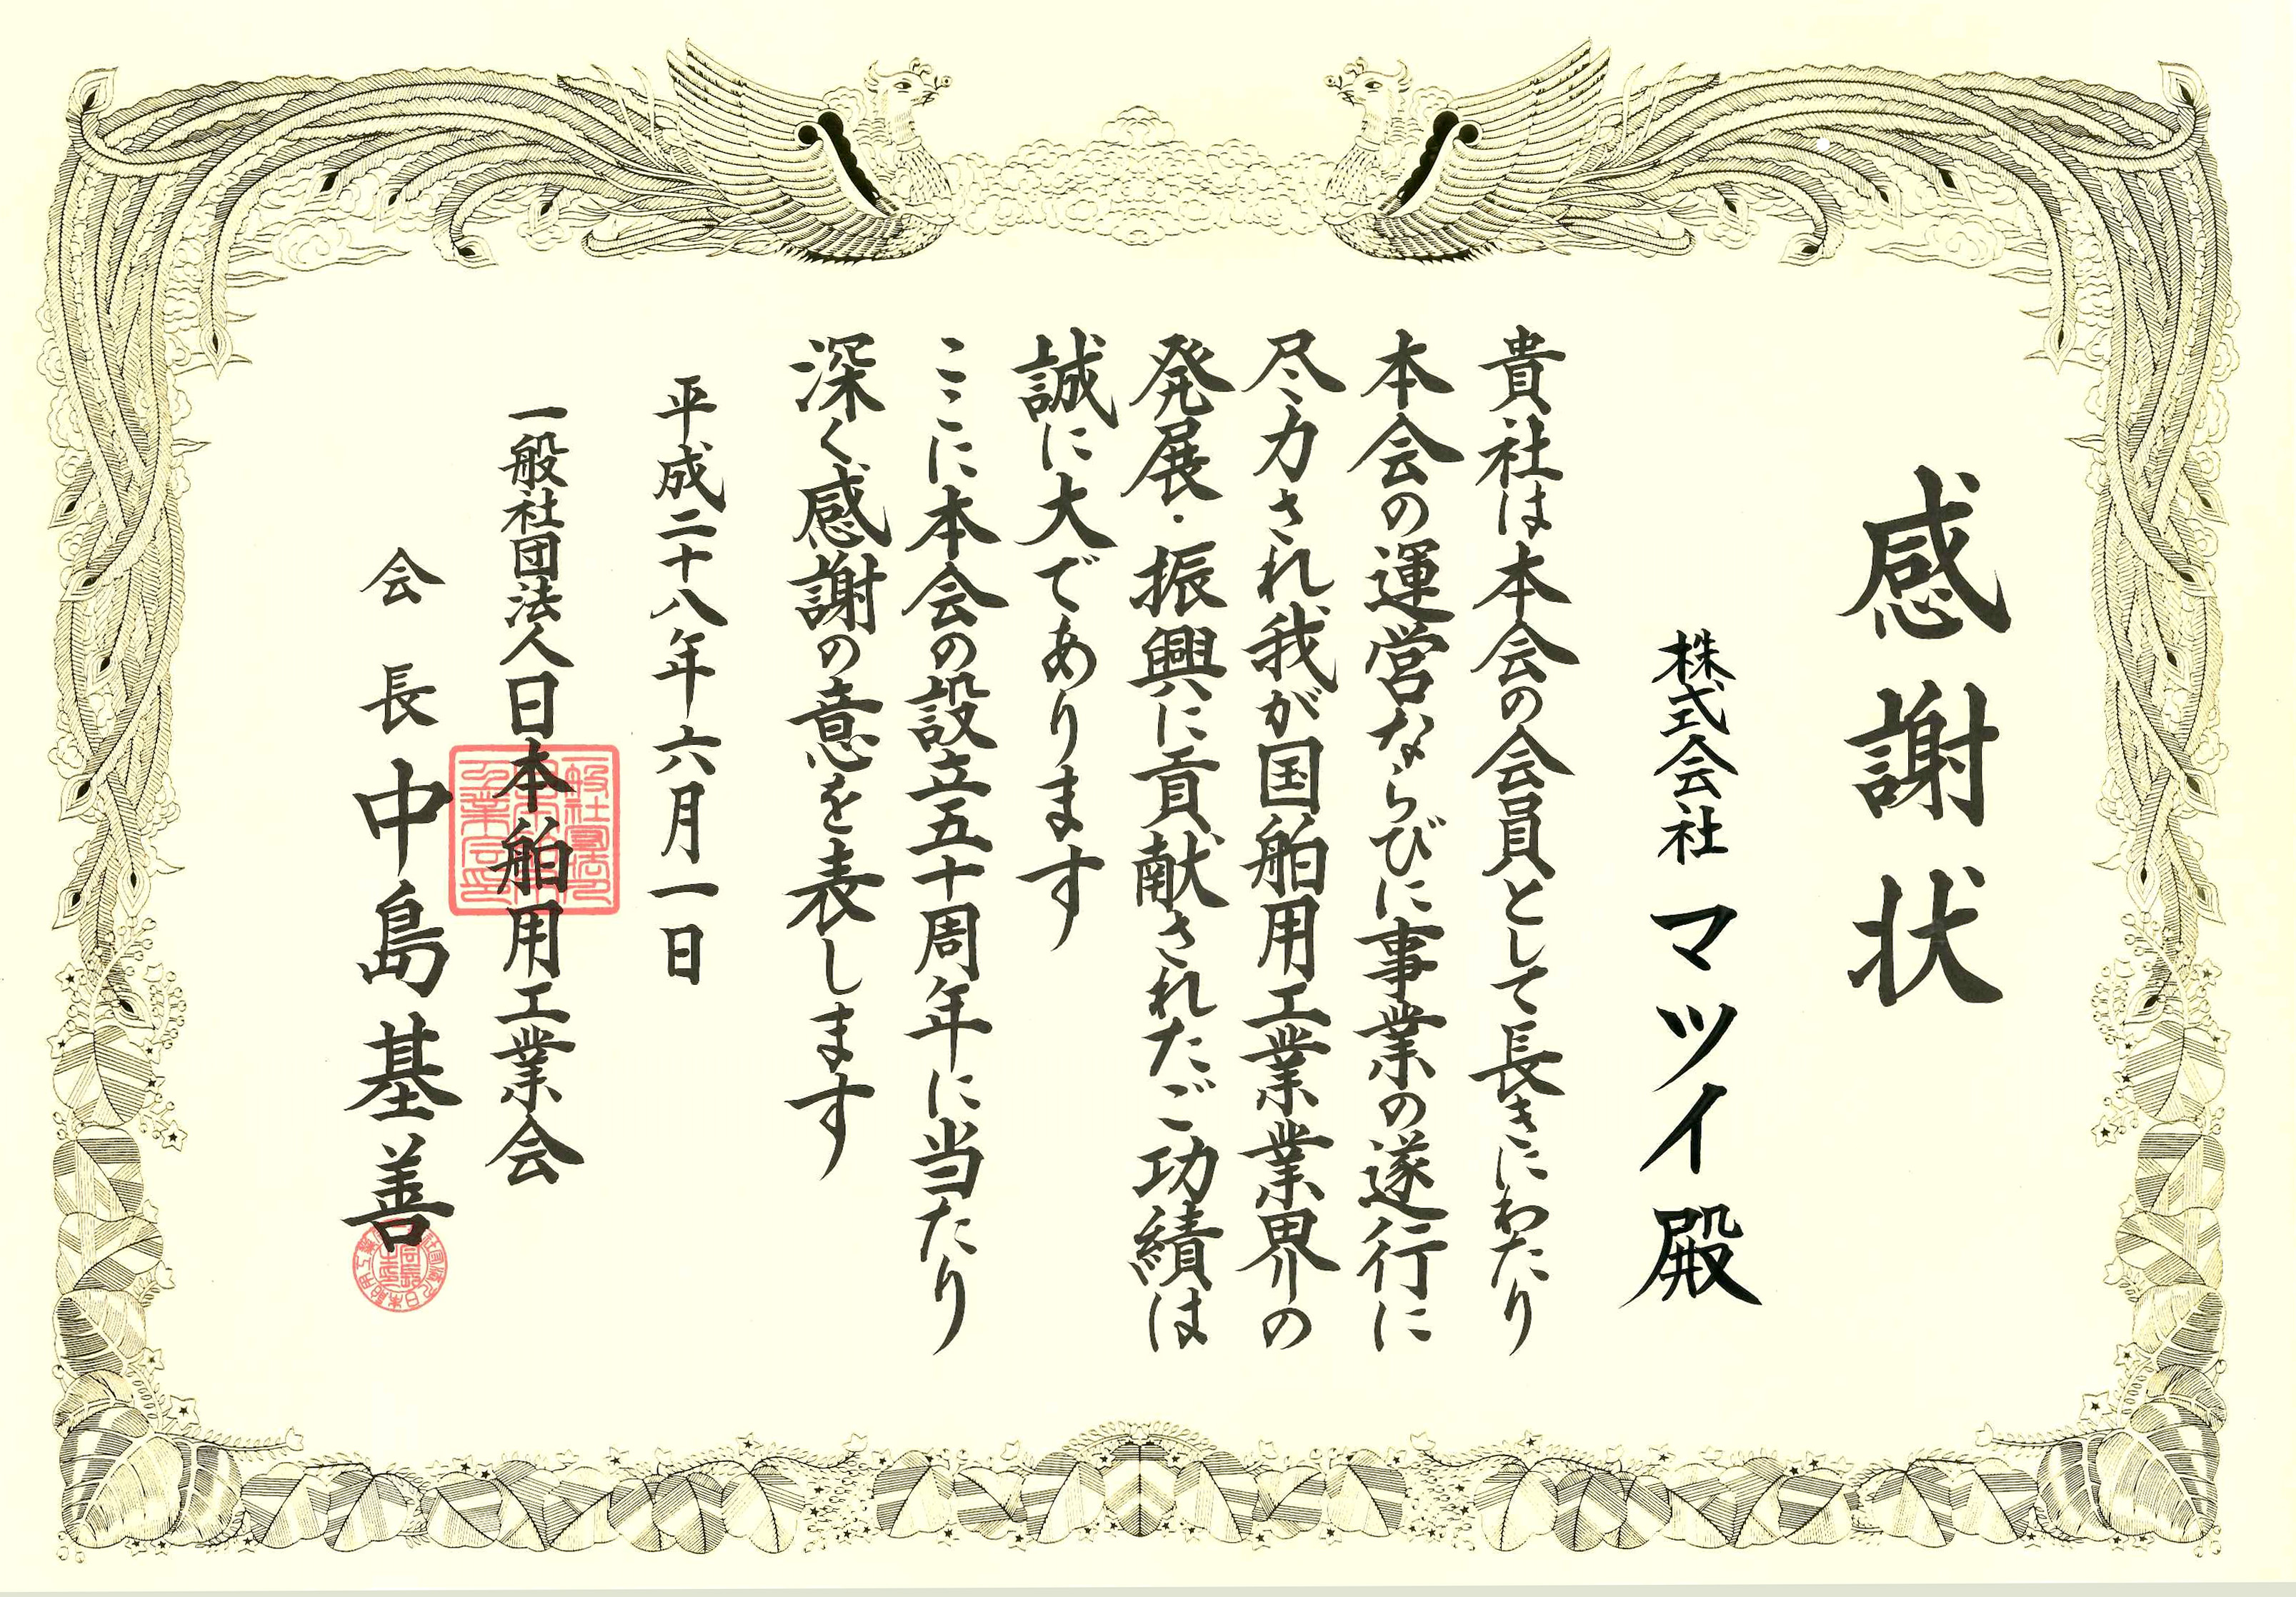 感謝状
株式会社 マツイ 殿
貴社は本会の会員として長きにわたり
本会の運営ならびに事業の遂行に
尽力され我が国舶用工業業界の
発展・振興に貢献されたご功績は
誠に大であります
ここに本会の設立五十周年に当たり
深く感謝の意を表します
平成二十八年六月一日
一般社団法人日本舶用工業会
会長 中島基善